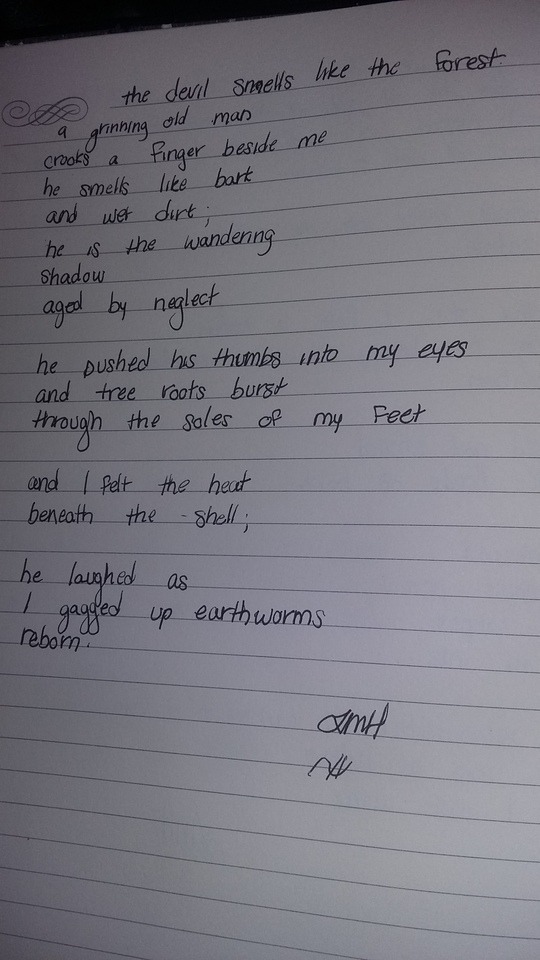 the devil smells like the forest
a grinning old man
crooks a finger beside me
he smells like bark
and wet dirt;
he is the wandering
shadow
aged by neglect
he pushed his thumbs into my eyes
and tree roots burst
through the soles of my feet
and I felt the heat
beneath the - shell;
he laughed as
I gagged up earthworms
reborn.